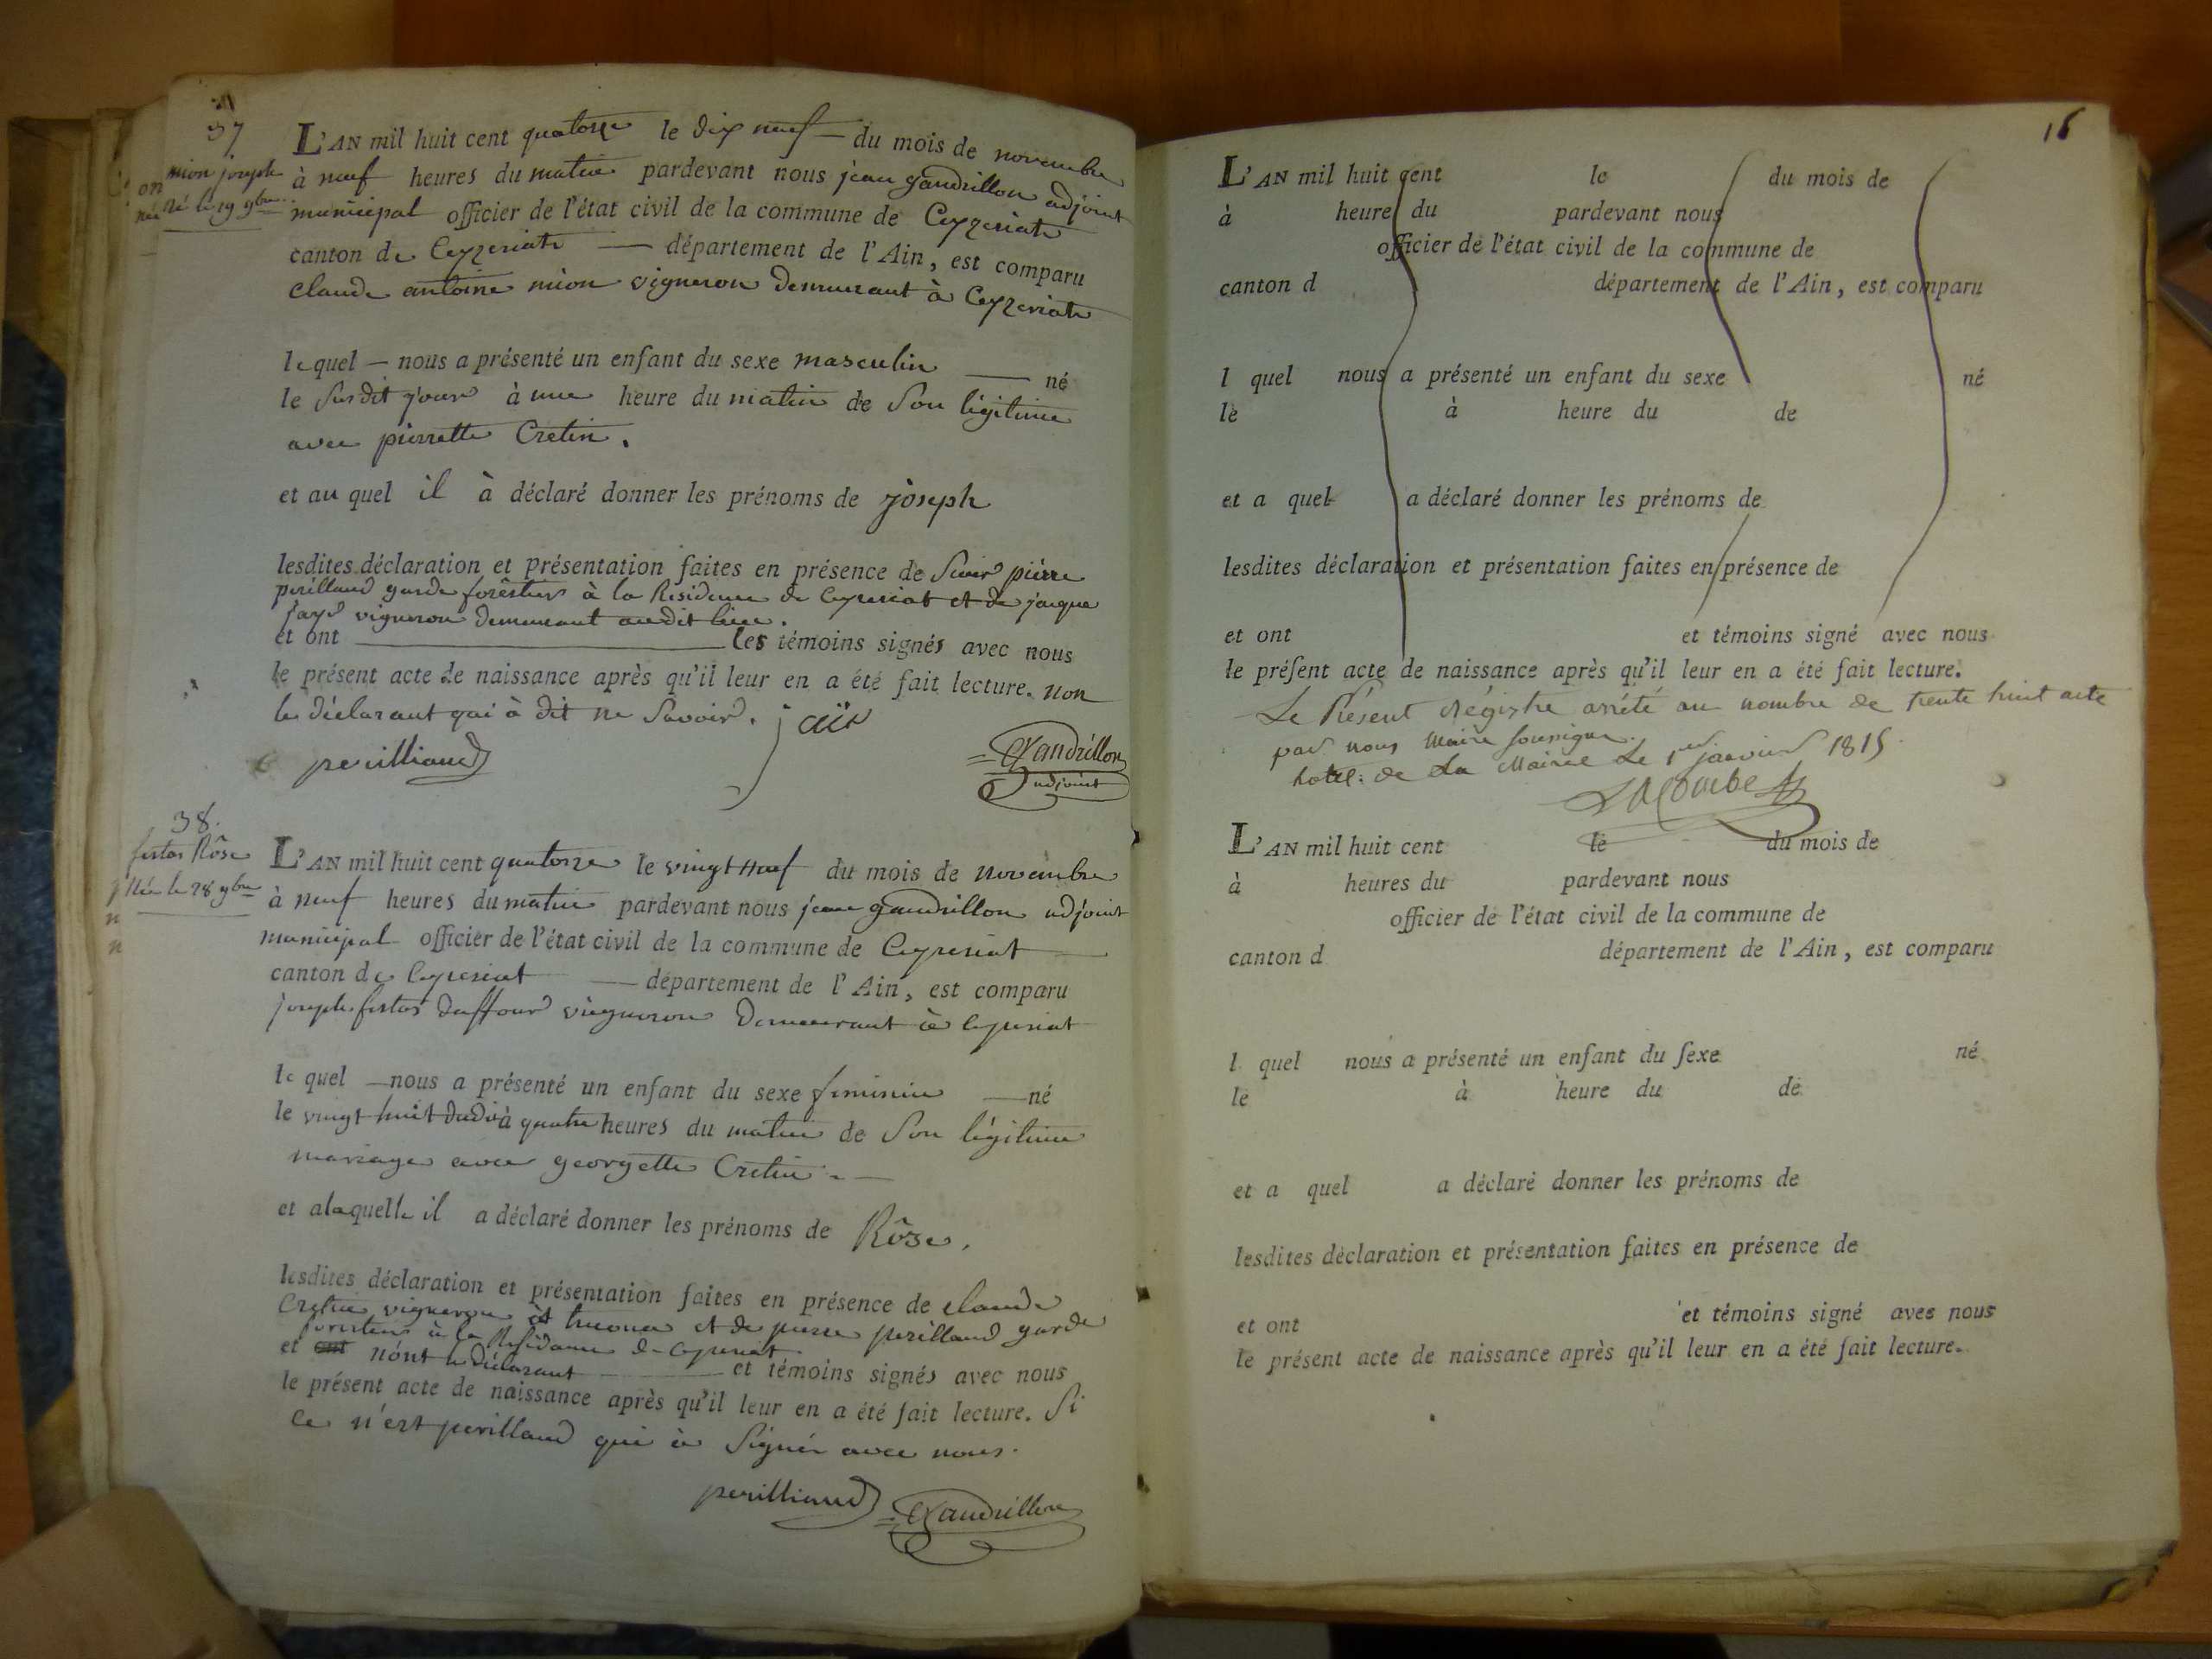 37
mion joseph
né le 19 9bre
L'AN mil huit cent quatorze le dix neuf du mois de novembre
à neuf heures du matin pardevant nous jean gandrillon adjoint
municipal officier de l'état civil de la commune de Ceyzeriat
canton de Ceyzeriat département de l'Ain, est comparu
claude antoine mion vigneron demeurant à Ceyzeriat
le quel nous a présenté un enfant du sexe masculin né
le susdit jour à une heure du matin de son légitime
avec pierrette Cretin.
et au quel il à déclaré donner les prénoms de joseph
lesdites déclaration et présentation faites en présence de Sieur pierre
perilland garde forêstier à la Residence de Ceyzeriat et de jacque
vigneron demeurant audit lieu.
et ont les témoins signés avec nous
le présent acte de naissance après qu'il leur en a été fait lecture. non
le déclarant qui à dit ne Savoir.
perilliand
Gandrillon
adjoint
38.
Rôse
Née le 28 9bre
L'AN mil huit cent quatorze le vingt neuf du mois de novembre
à neuf heures du matin pardevant nous jean gandrillon adjoint
municipal officier de l'état civil de la commune de Ceyzeriat
canton de Ceyzeriat département de l'Ain, est comparu
joseph duffour vigneron demeurant à Ceyzeriat
le quel nous a présenté un enfant du sexe feminin né
le vingt huit dudit à quatre heures du matin de son légitime
mariage avec georgette Cretin
et alaquelle il a déclaré donner les prénoms de Rôse.
lesdites déclaration et présentation faites en présence de claude
Cretin vigneron et de pierre perilland garde
forestier à la Résidence de Ceyzeriat
et ont n'ont le déclarant et témoins signés avec nous
le présent acte de naissance après qu'il leur en a été fait lecture. Si
ce n'est perilland qui à Signé avec nous.
perilliand Gandrillon
16
L'AN mil huit cent le du mois de
à heure du pardevant nous
officier de l'état civil de la commune de
canton d département de l'Ain, est comparu
l quel nous a présenté un enfant du sexe né
le à heure du de
et a quel a déclaré donner les prénoms de
lesdites déclaration et présentation faites en présence de
et ont et témoins signé avec nous
le préſent acte de naissance après qu'il leur en a été fait lecture.
Le Présent Régistre arrêté au nombre de trente huit acte
par nous Maire soussigné.
hotel de La Mairie Le 1er janvier 1815
Lacombe
L'AN mil huit cent le du mois de
à heures du pardevant nous
officier de l'état civil de la commune de
canton d département de l'Ain, est comparu
l quel nous a présenté un enfant du ſexe né
le à heure du de
et a quel a déclaré donner les prénoms de
lesdites déclaration et présentation faites en présence de
et ont et témoins signé avec nous
le présent acte de naissance après qu'il leur en a été fait lecture.